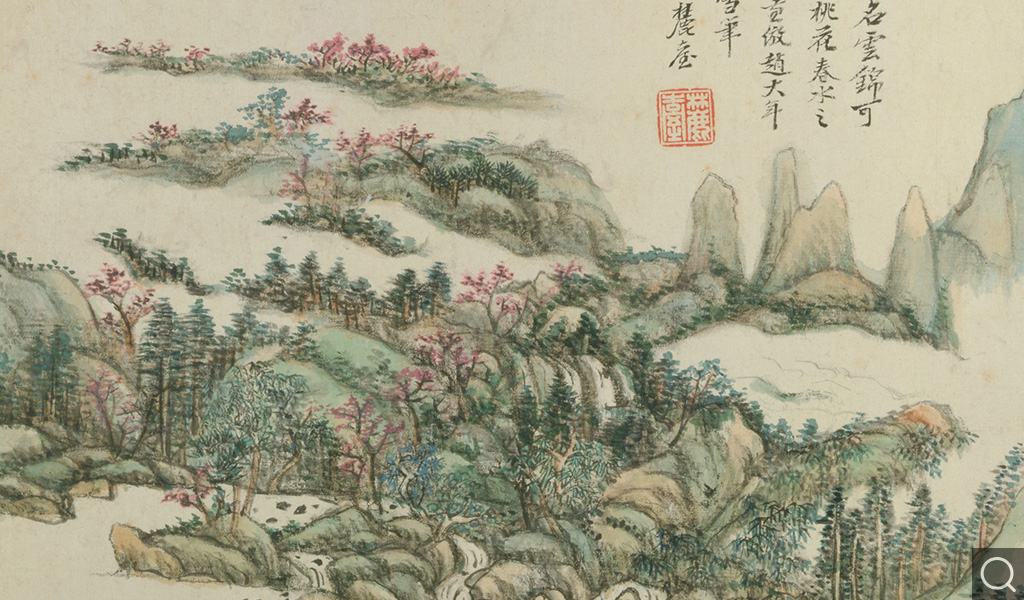 名雲錦可
桃花春水之
意倣趙大年
雪筆
麓臺